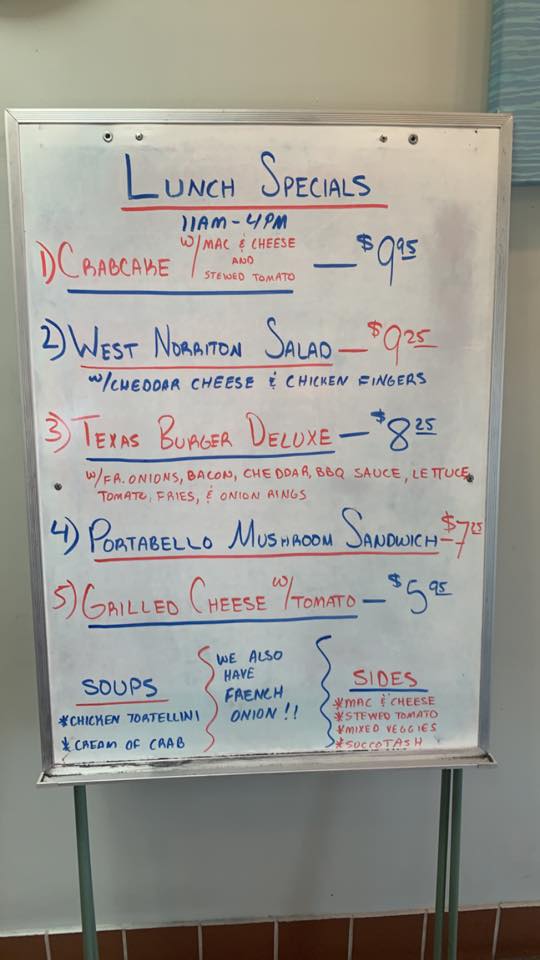 LUNCH SPECIALS
11AM-4PM
1) CRABCAKE W/MAC & CHEESE AND STEWED TOMATO — $9.95
2) WEST NORRITON SALAD — $9.25
W/CHEDDAR CHEESE & CHICKEN FINGERS
3) TEXAS BURGER DELUXE — $8.25
W/FR. ONIONS, BACON, CHEDDAR, BBQ SAUCE, LETTUCE,
TOMATO, FRIES, & ONION RINGS
4) PORTABELLO MUSHROOM SANDWICH — $7.25
5) GRILLED CHEESE W/TOMATO — $5.95
SOUPS
*CHICKEN TORTELLINI
*CREAM OF CRAB
WE ALSO
HAVE
FRENCH
ONION!!
SIDES
*MAC & CHEESE
*STEWED TOMATO
*MIXED VEGGIES
*SUCCOTASH